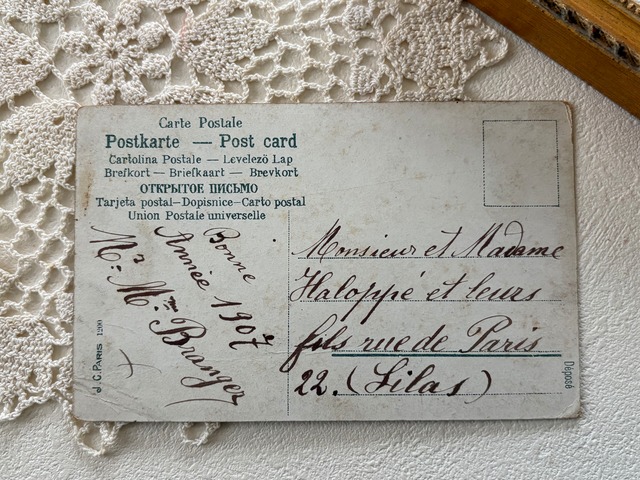 Carte Postale
Postkarte — Post card
Cartolina Postale — Levelező Lap
Brefkort — Briefkaart — Brevkort
ОТКРЫТОЕ ПИСЬМО
Tarjeta postal—Dopisnice—Carto postal
Union Postale universelle
Bonne
Année 1907
Mr. Mme Branger
J.C. PARIS 1200
Monsieur et Madame
Haloppé et leurs
fils rue de Paris
22. (Lilas)
Déposé